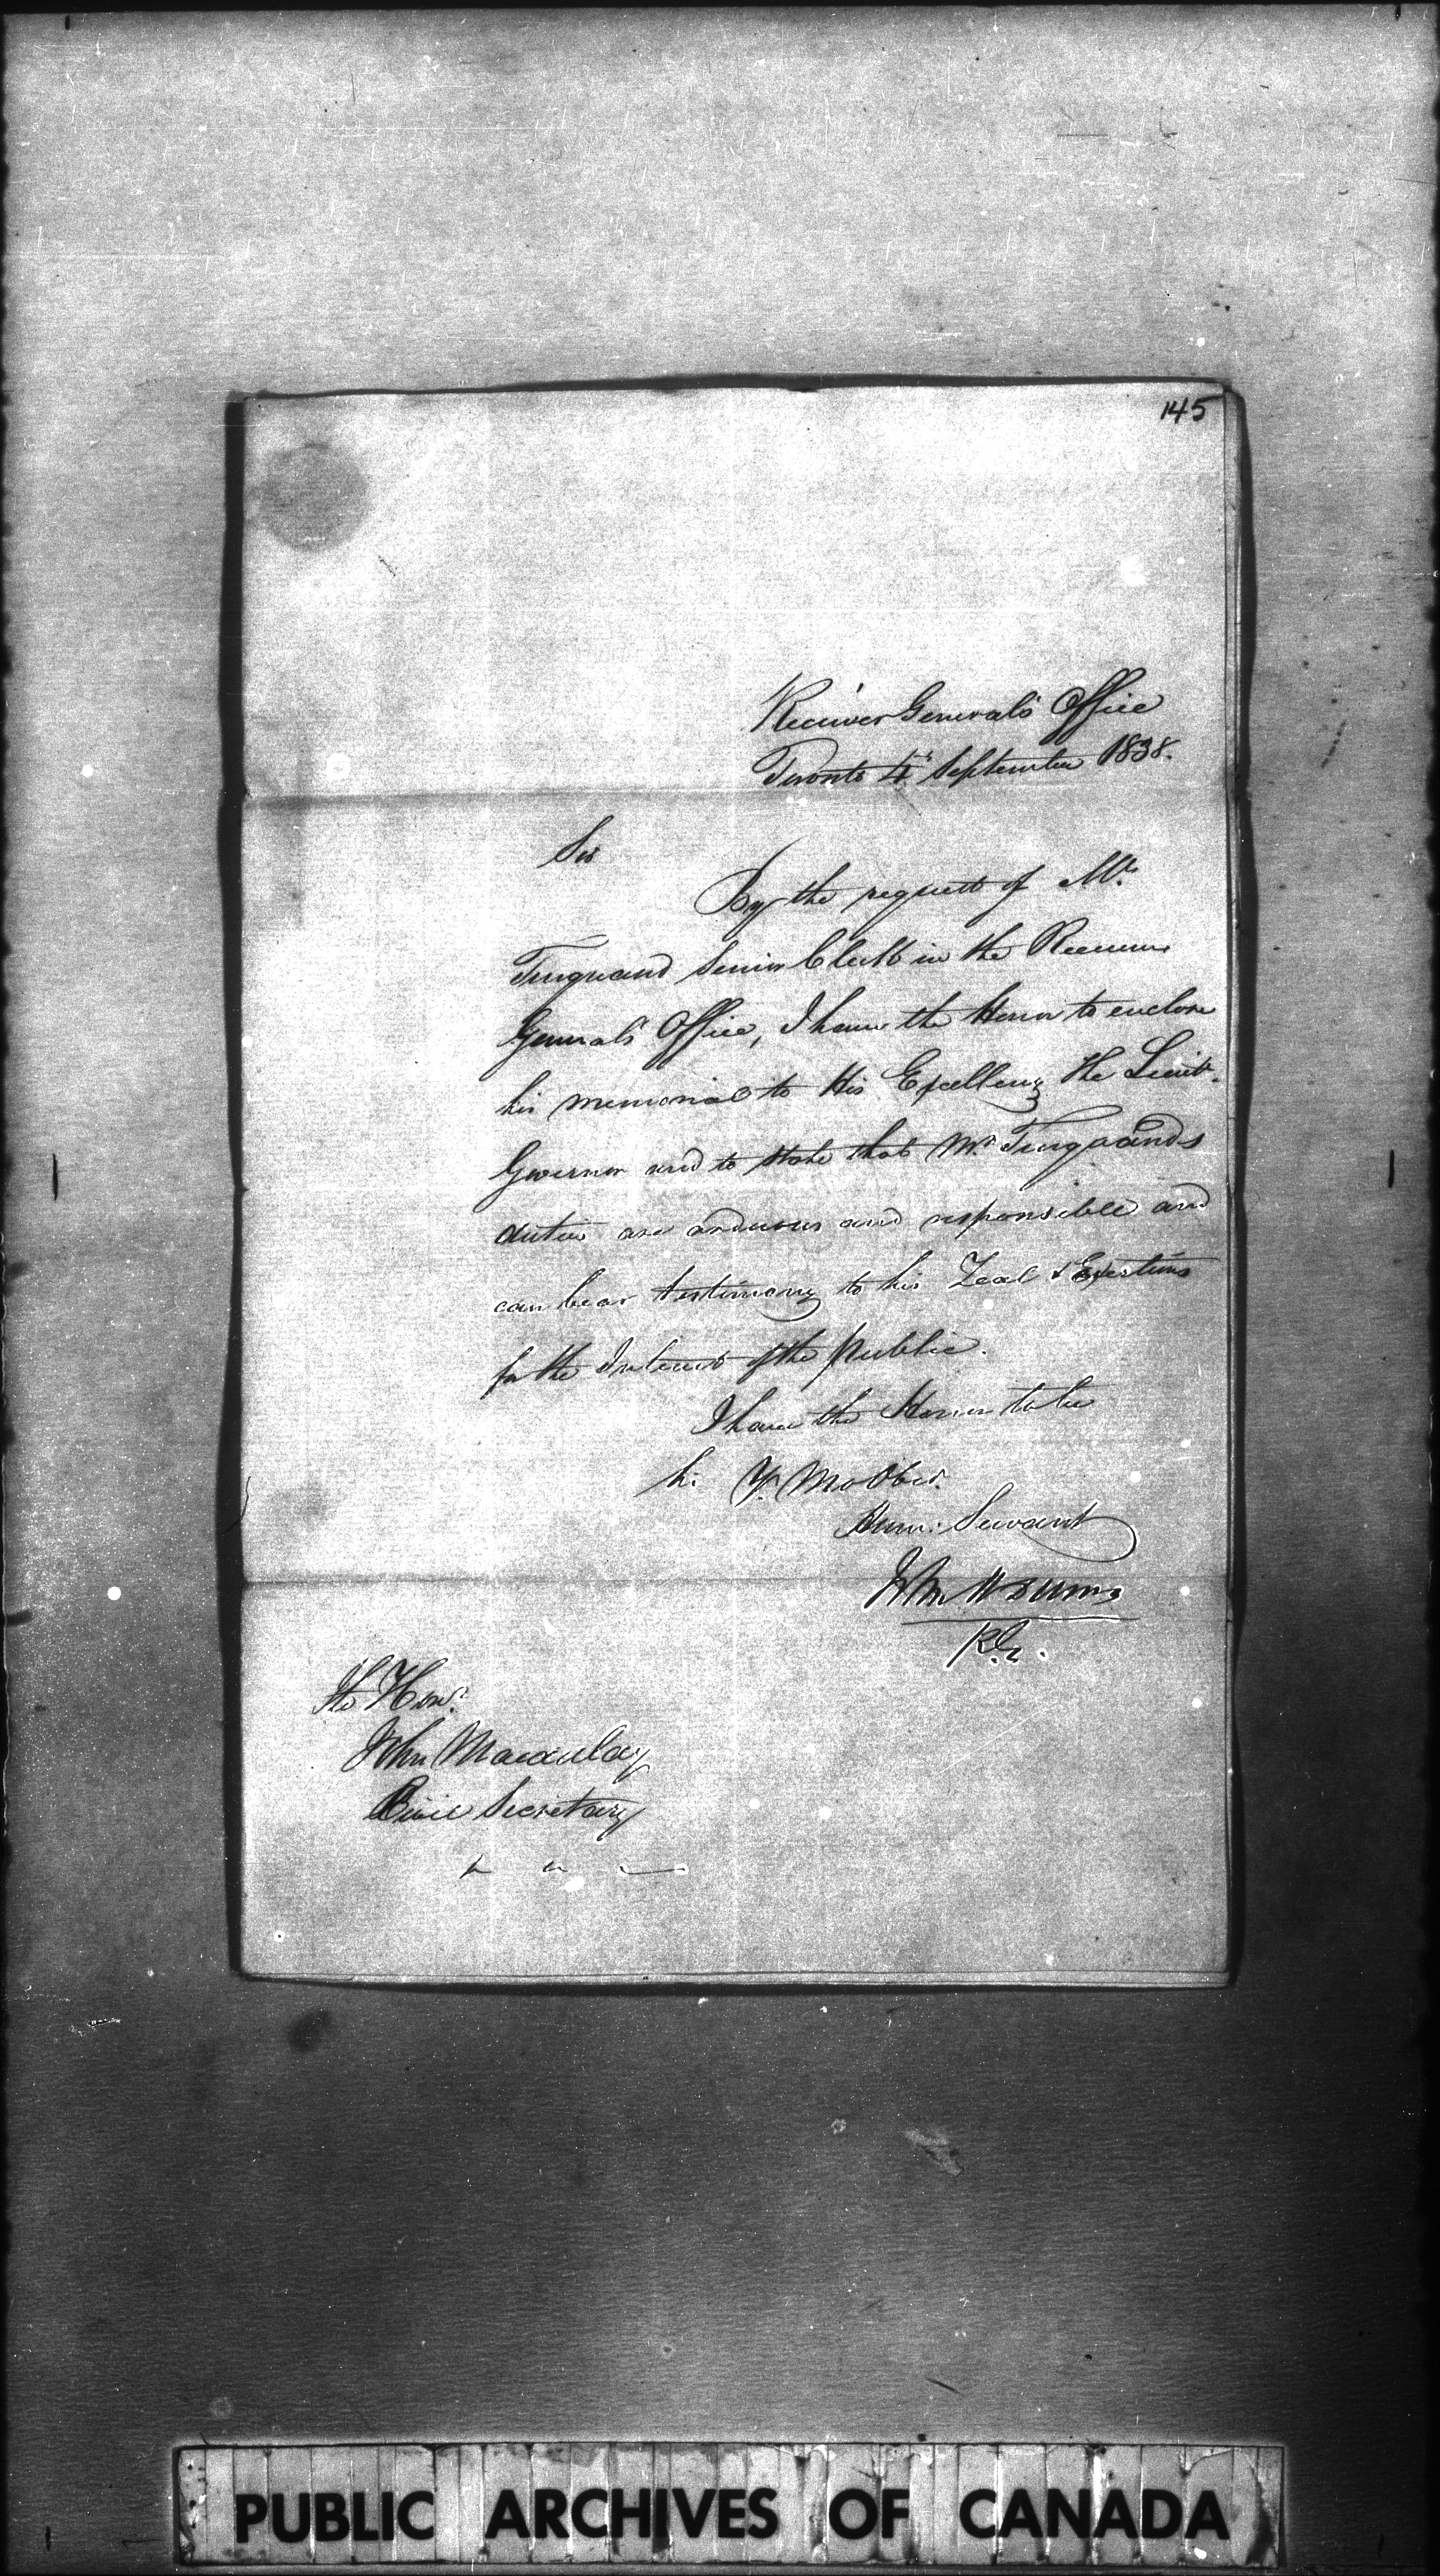 145
Receiver General's Office
Toronto 4th September 1838.
Sir
By the request of Mr.
Turquand Senior Clerk in the Receiver
General's Office, I have the Honor to enclose
his memorial to His Excellency the Lieut.
Governor and to state that Mr. Turquand's
duties are arduous and responsible and
can bear testimony to his Zeal & Exertions
for the Interest of the Public.
I have the Honor to be
Sir Yr. Mo Obed.
Hum: Servant
John H Dunn
R.G.
The Honl.
John Macaulay
Civil Secretary
PUBLIC ARCHIVES OF CANADA